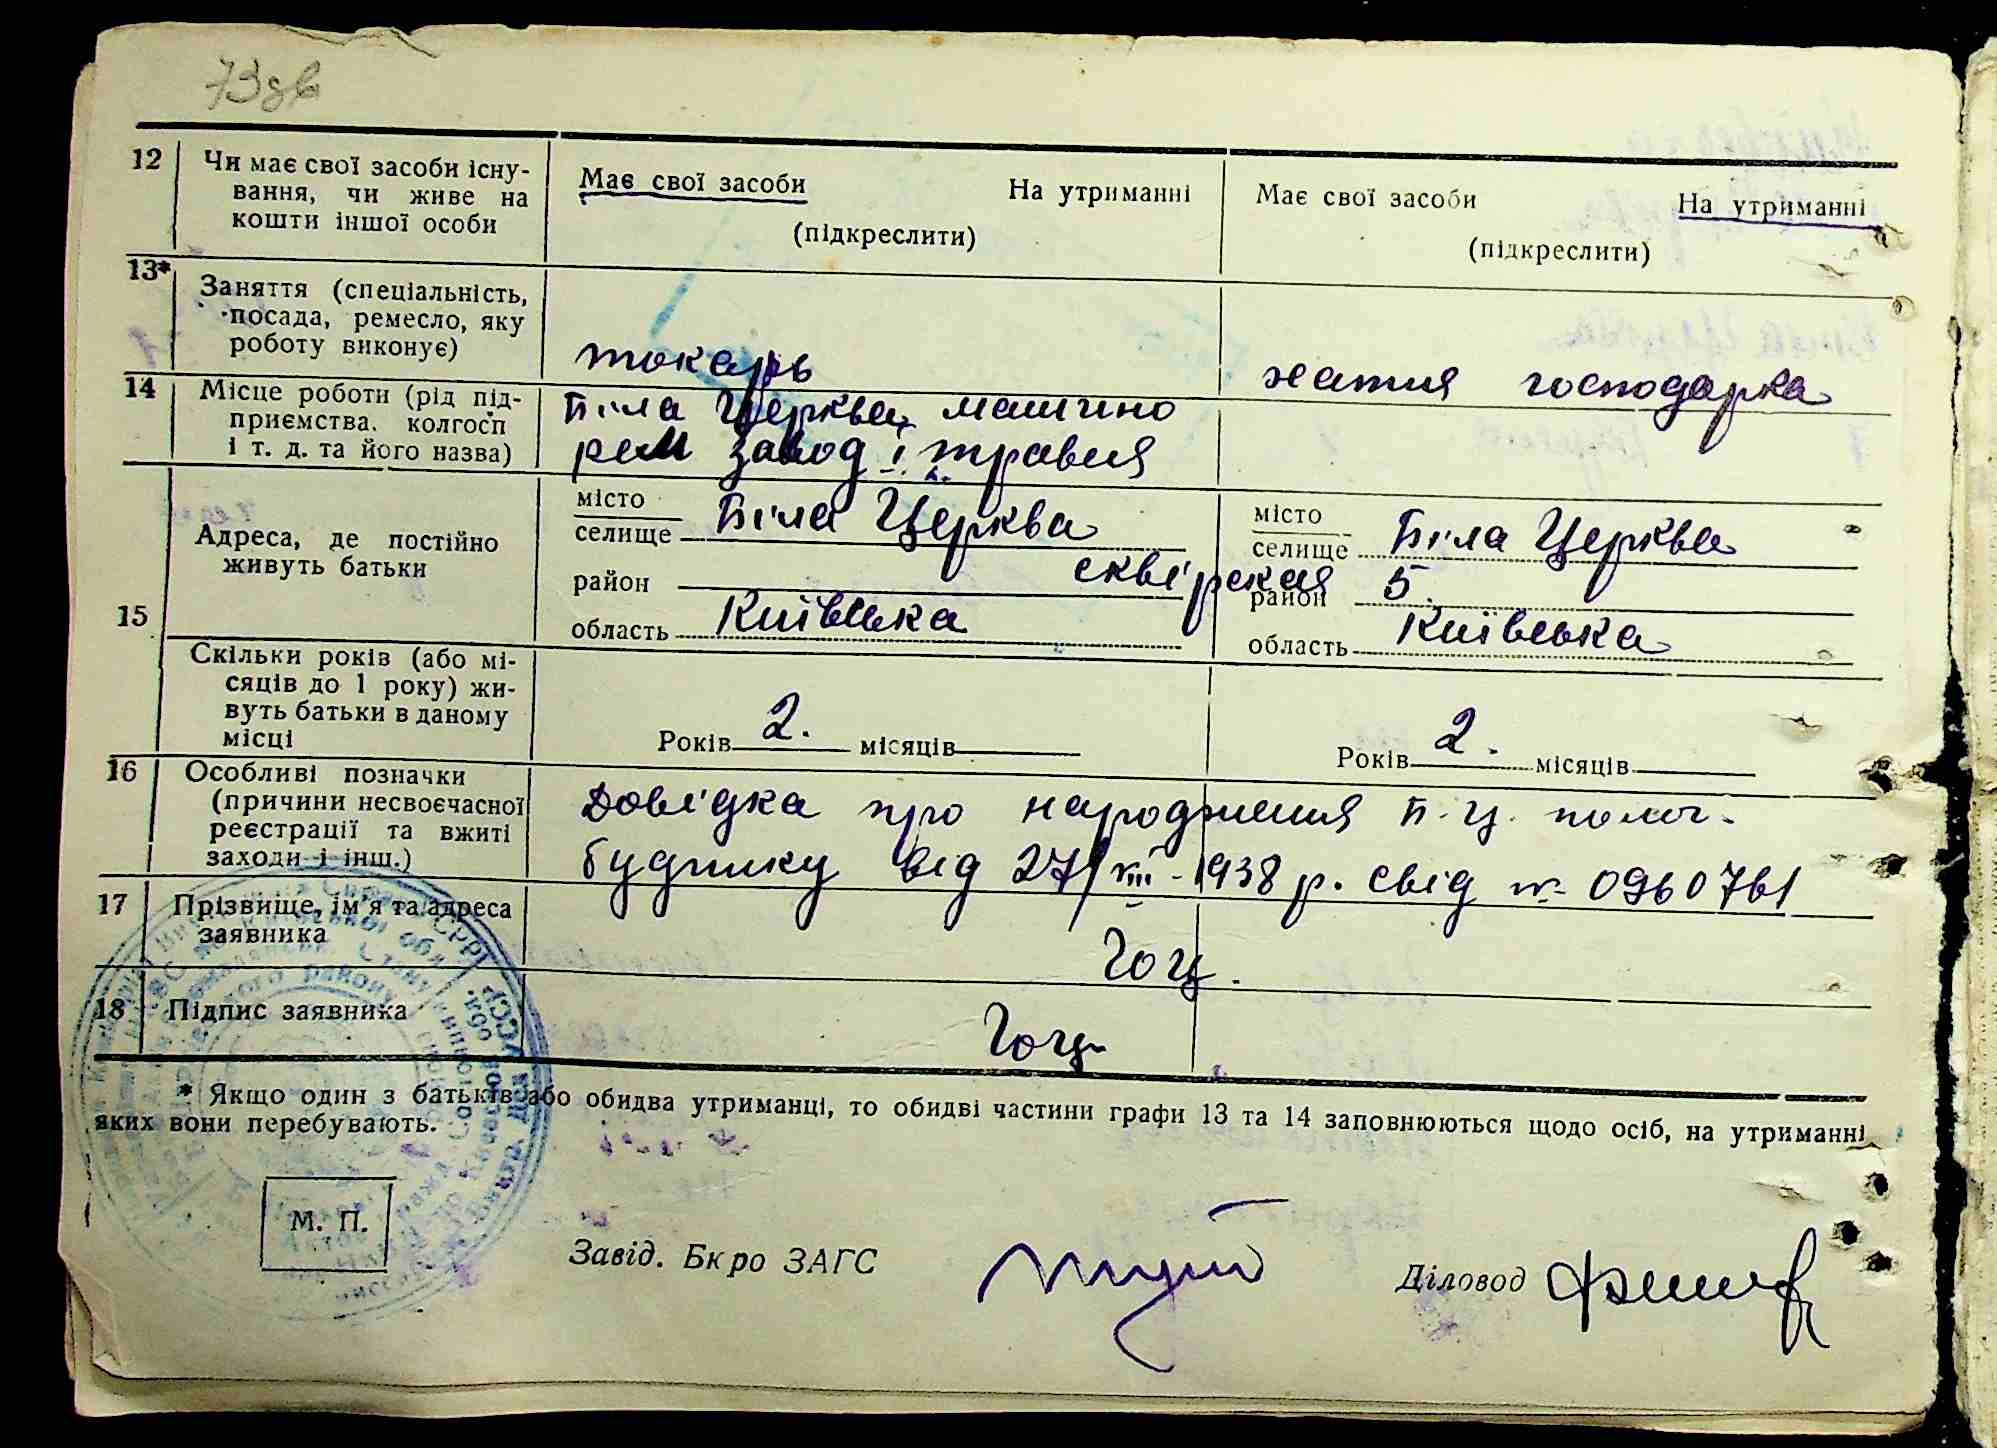 73 зв
12 Чи має свої засоби існу-
вання, чи живе на
кошти іншої особи
Має свої засоби На утриманні
(підкреслити)
Має свої засоби На утриманні
(підкреслити)
13* Заняття (спеціальність,
посада, ремесло, яку
роботу виконує)
токарь
хатня господарка
14 Місце роботи (рід під-
приємства, колгосп
і т. д. та його назва)
Біла Церква машино
рем завод 1 травня
15 Адреса, де постійно
живуть батьки
місто
селище Біла Церква
район сквірская 5.
область Київська
місто
селище Біла Церква
район
область Київська
Скільки років (або мі-
сяців до 1 року) жи-
вуть батьки в даному
місці
Років 2. місяців
Років 2. місяців
16 Особливі позначки
(причини несвоєчасної
реєстрації та вжиті
заходи і інш.)
Довідка про народження Б.Ц. полог.
будинку від 27/XII-1938 р. свід № 0960761
17 Прізвище, ім'я та адреса
заявника
Гоц.
18 Підпис заявника
Гоц
* Якщо один з батьків або обидва утриманці, то обидві частини графи 13 та 14 заповнюються щодо осіб, на утриманні
яких вони перебувають.
М. П.
Завід. Бюро ЗАГС
Діловод